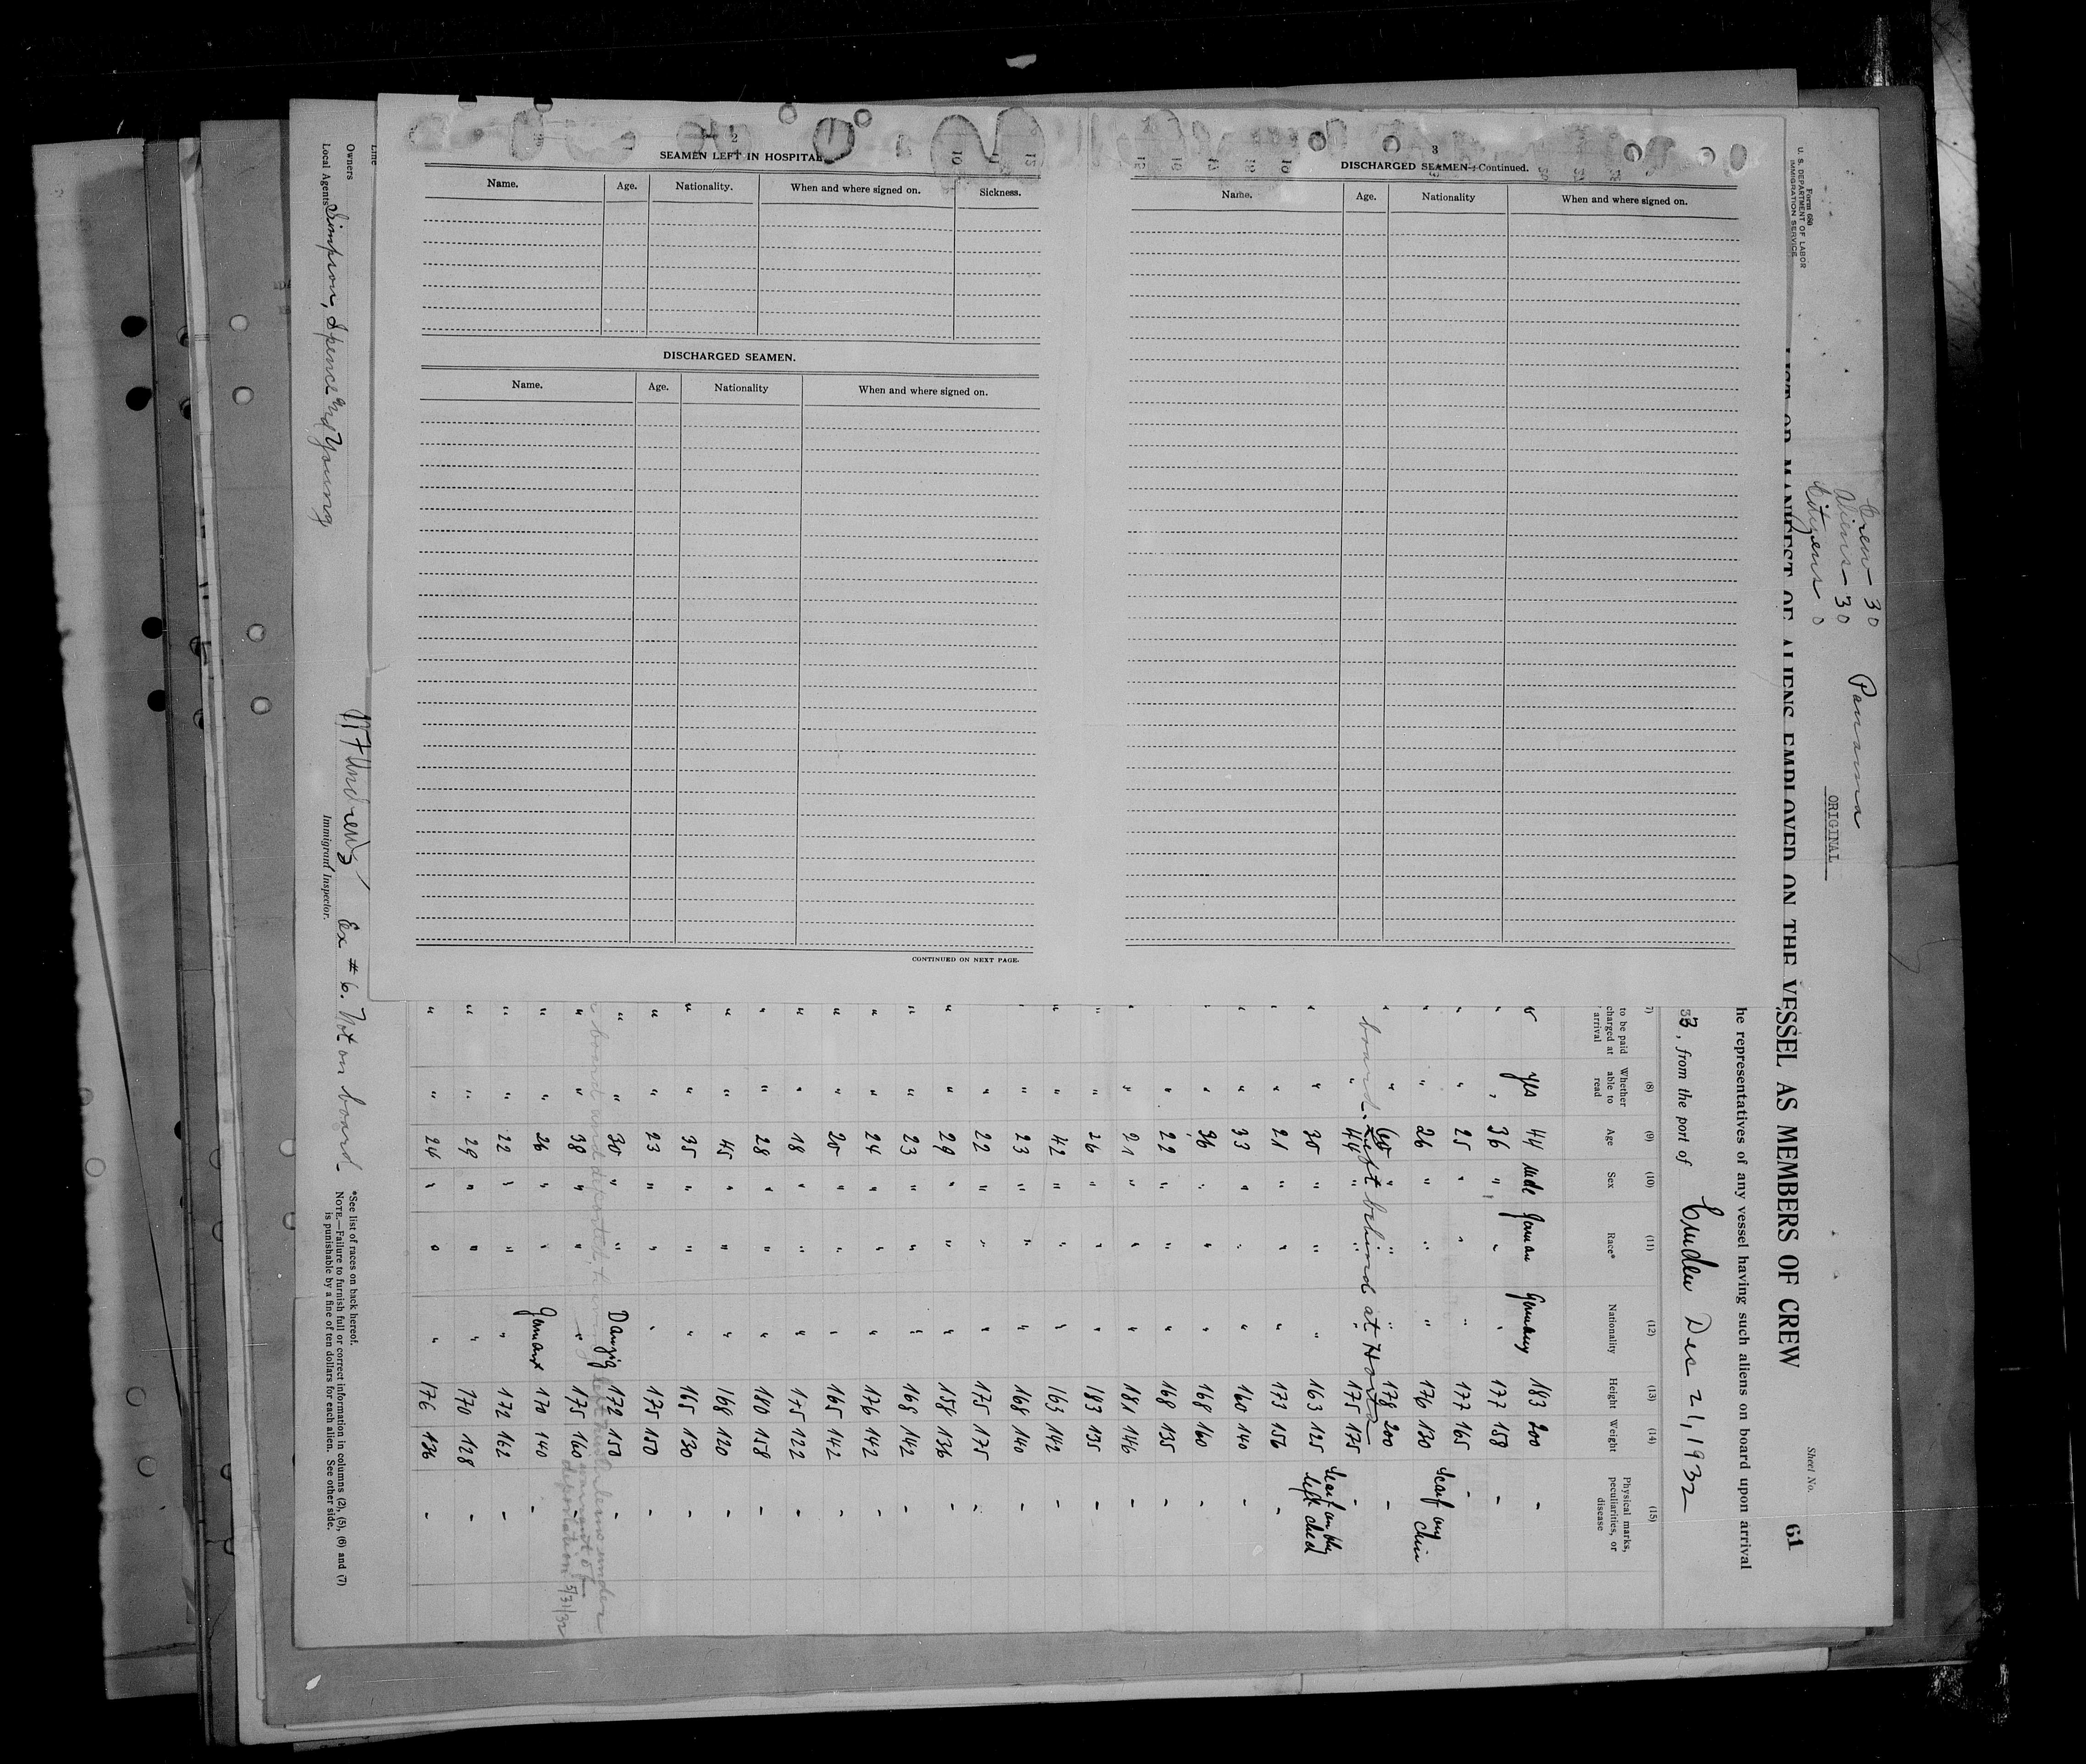 2
SEAMEN LEFT IN HOSPITAL
Name. Age. Nationality. When and where signed on. Sickness.
DISCHARGED SEAMEN.
Name. Age. Nationality When and where signed on.
CONTINUED ON NEXT PAGE.
3
DISCHARGED SEAMEN—Continued.
Name. Age. Nationality When and where signed on.
Form 680
U. S. DEPARTMENT OF LABOR
IMMIGRATION SERVICE
Crew - 30
Aliens - 30
Citizens 0
Panama
ORIGINAL
LIST OR MANIFEST OF ALIENS EMPLOYED ON THE VESSEL AS MEMBERS OF CREW
Sheet No. 61
he representatives of any vessel having such aliens on board upon arrival
33, from the port of Emden Dec 21, 1932
(7) (8) (9) (10) (11) (12) (13) (14) (15)
to be paid charged at arrival Whether able to read Age Sex Race* Nationality Height Weight Physical marks, peculiarities, or disease
yes 44 male German Germany 183 200 -
" " 36 " " " 177 158 -
" " 25 " " " 177 165 -
" " 26 " " " 176 130 scarf on chin
" " " " " 178 200 -
" 44 " " " 175 175 -
board. Left behind at Horta
" " 30 " " " 163 125 scarf on the left cheek
" " 21 " " " 173 156 -
" " 33 " " " 160 140 -
" " 36 " " " 168 160 -
" " 22 " " " 168 135 -
" " 21 " " " 181 146 -
" " 26 " " " 183 135 -
" " 42 " " " 163 142 -
" " 23 " " " 168 140 -
" " 22 " " " 175 175 -
" " 29 " " " 158 136 -
" " 23 " " " 168 142 -
" " 24 " " " 176 142 -
" " 20 " " " 165 142 -
" " 18 " " " 175 122 -
" " 28 " " " 180 158 -
" " 45 " " " 168 120 -
" " 35 " " " 165 130 -
" " 23 " " " 175 150 -
" " 30 " " Danzig 172 150 -
board and deported, under
" " 38 " " " 175 160 -
warrant of
deportation 5/31/32
" " 26 " " Germany 170 140 -
" " 22 " " " 172 162 -
" " 29 " " " 170 128 -
" " 24 " " " 176 136 -
Line
Owners
Local Agents Simpson, Spence and Young
Immigrant Inspector.
Ex # 6. Not on board
*See list of races on back hereof.
NOTE.—Failure to furnish full or correct information in columns (2), (5), (6) and (7)
is punishable by a fine of ten dollars for each alien. See other side.